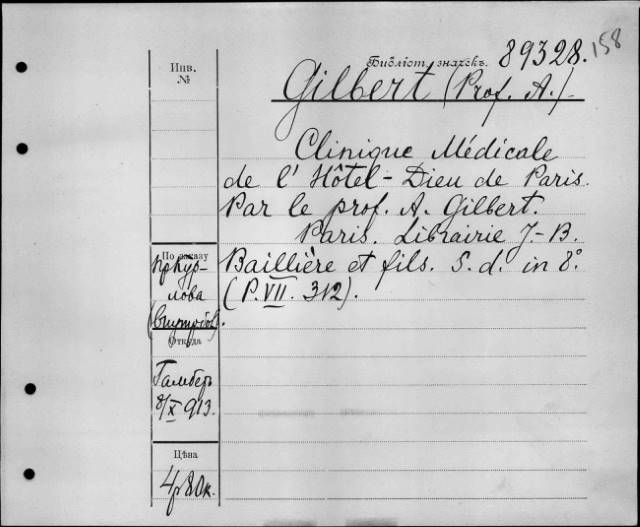 Библіот. значекъ. 89328. 158
Инв.
№
Gilbert (Prof. A.)
Clinique Médicale
de l' Hôtel-Dieu de Paris.
Par le prof. A. Gilbert.
Paris. Librairie J.-B.
Baillière et fils. S. d. in 8°.
(P. VII. 312).
По заказу
Откуда
8/X 913.
Цѣна
4р 80к.